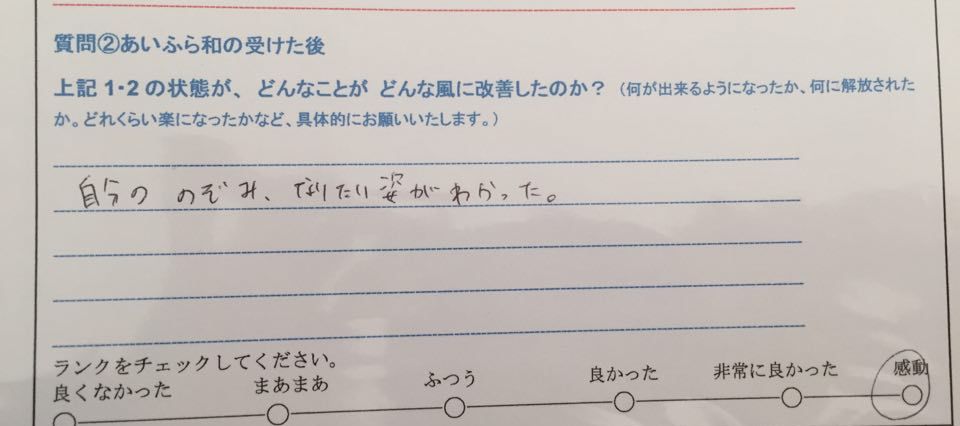 質問②あいふら和の受けた後
上記 1・2 の状態が、 どんなことが どんな風に改善したのか？（何が出来るようになったか、何に解放された
か。どれくらい楽になったかなど、具体的にお願いいたします。）
自分の のぞみ、なりたい姿がわかった。
ランクをチェックしてください。
良くなかった まあまあ ふつう 良かった 非常に良かった 感動